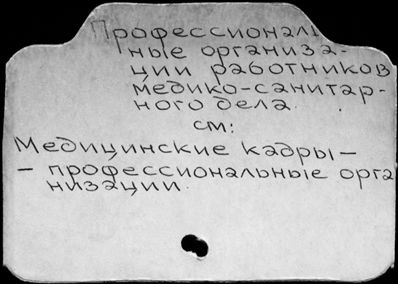 Профессиональ
ные организа-
ции работников
медико-санитар-
ного дела.
см:
Медицинские кадры-
- профессиональные орга
низации.